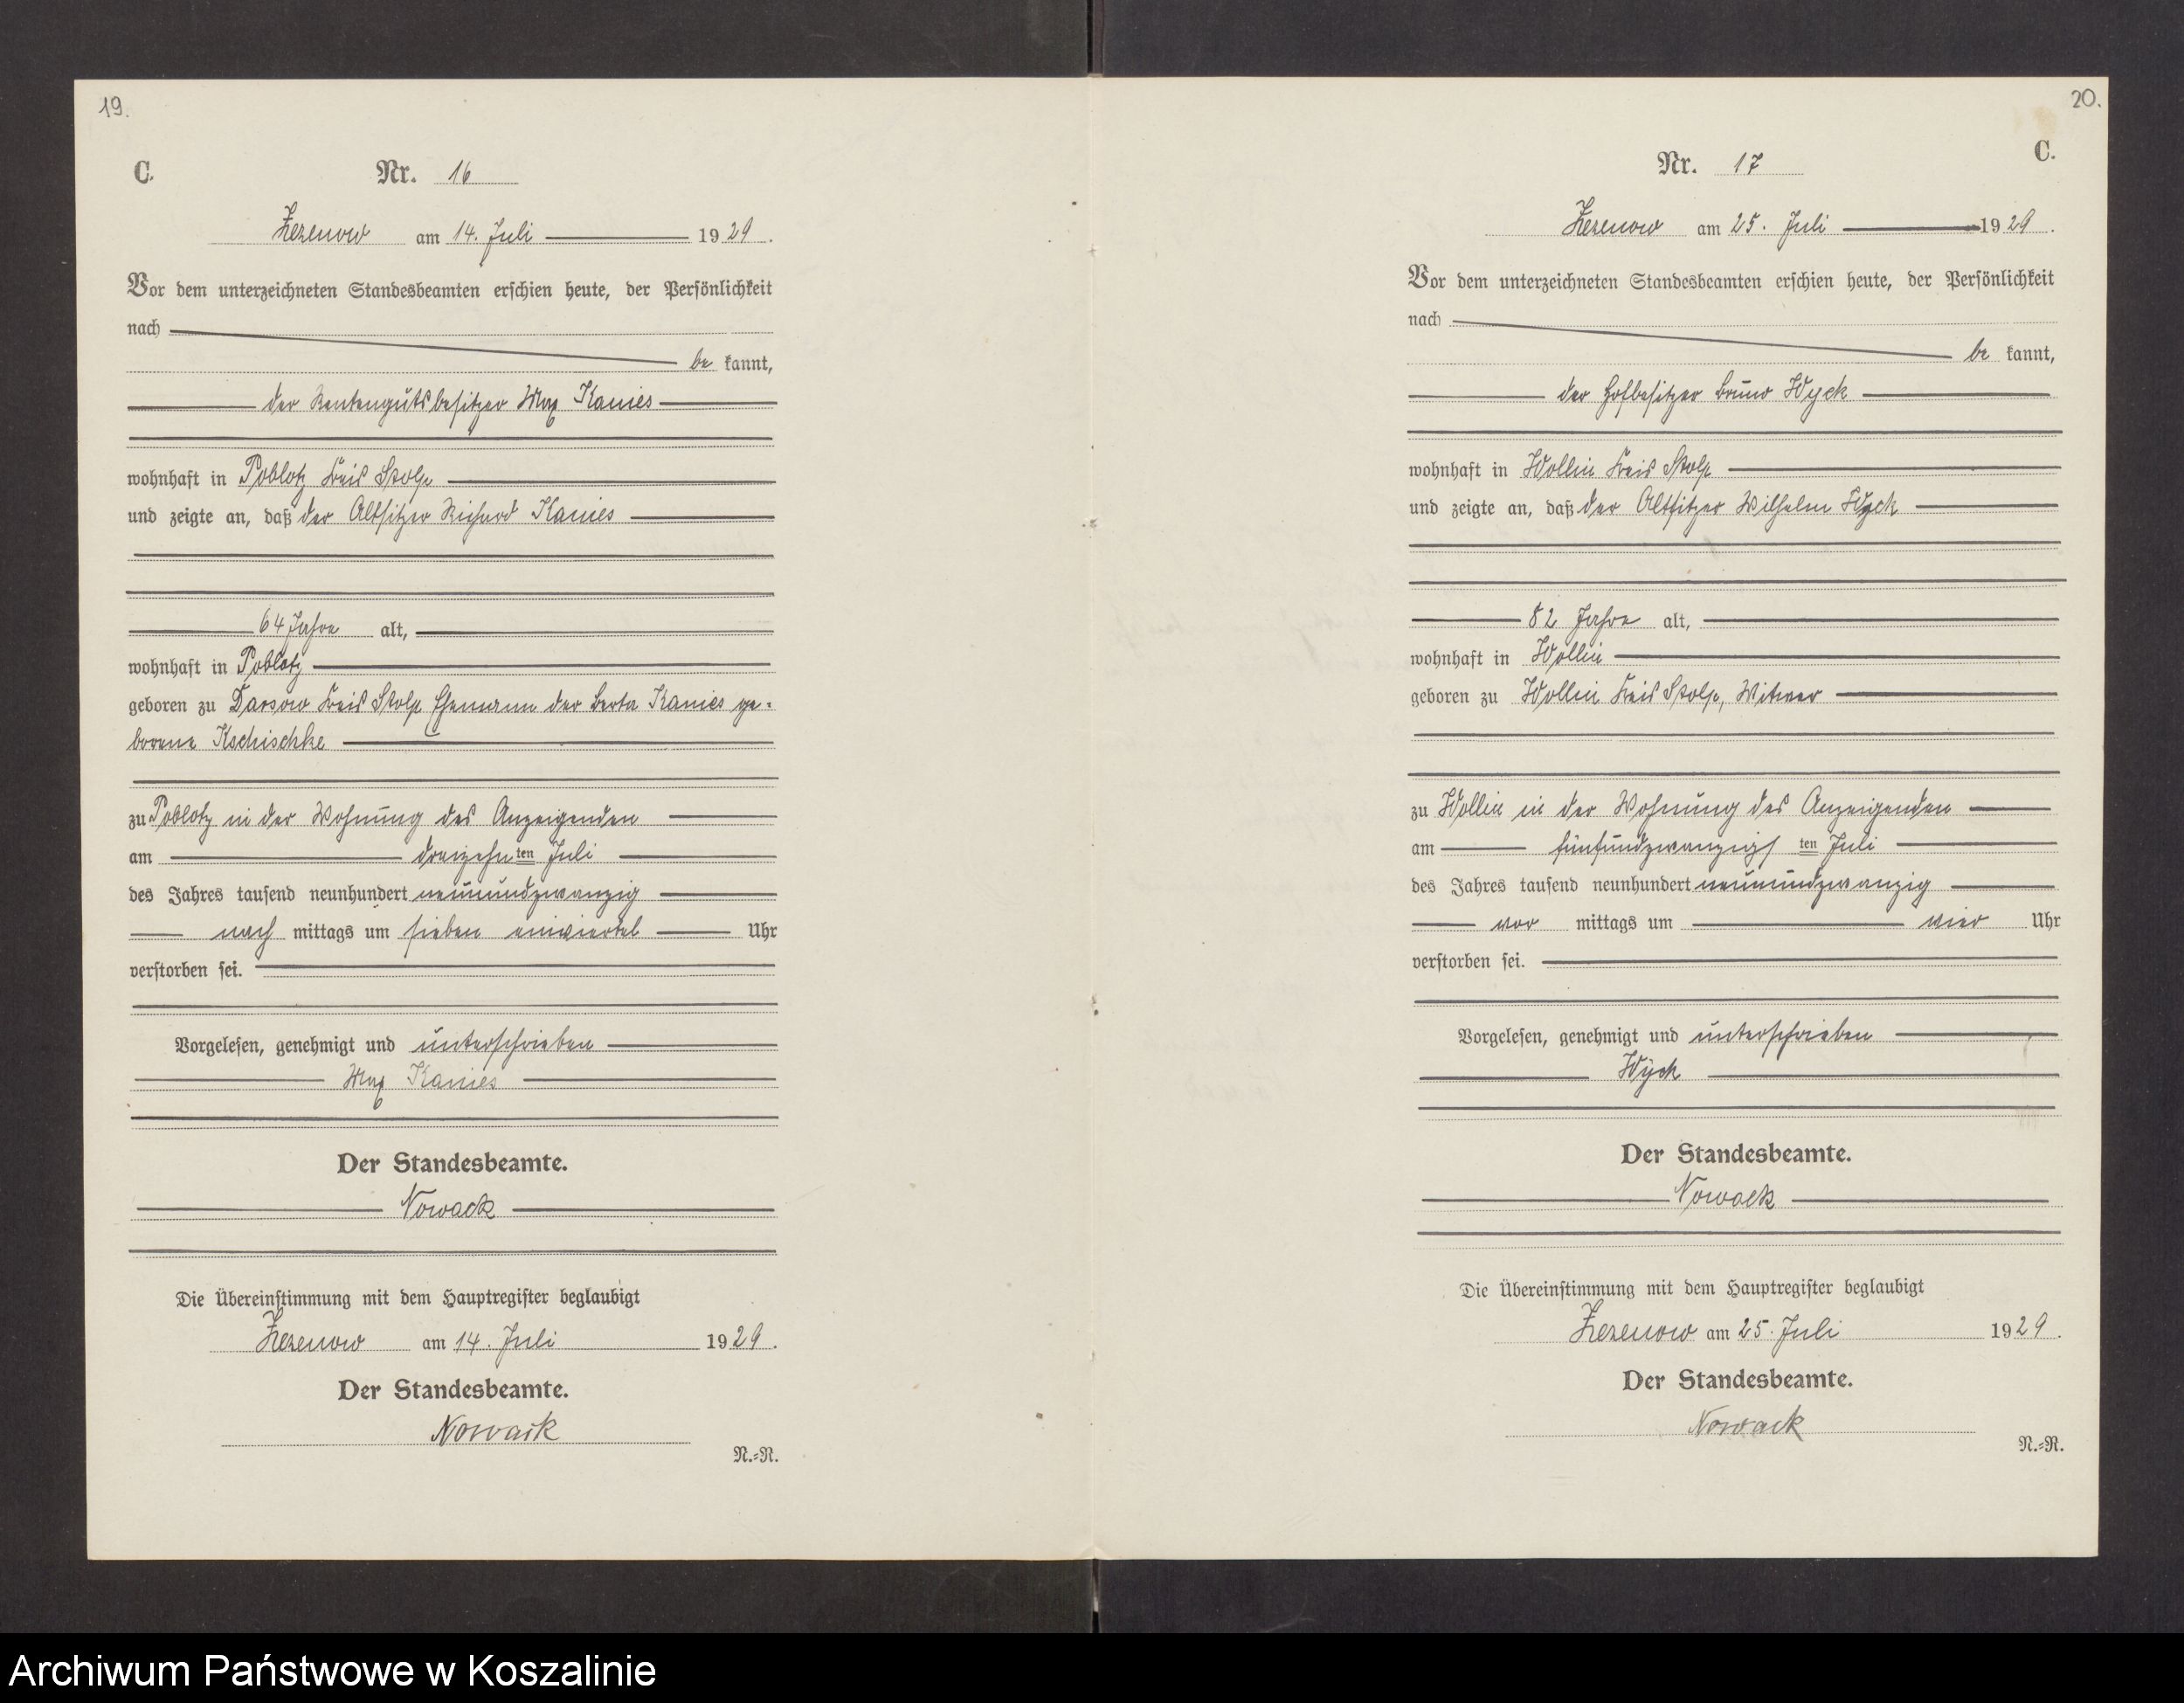 19.
C.
Nr. 16
Zezenow am 14. Juli 1929.
Vor dem unterzeichneten Standesbeamten erschien heute, der Persönlichkeit
nach
be kannt,
der Rentengutsbesitzer Max Kanies
wohnhaft in Poblotz Kreis Stolp
und zeigte an, daß der Altsitzer Richard Kanies
64 Jahre alt,
wohnhaft in Poblotz
geboren zu Darsow Kreis Stolp Ehemann der Berta Kanies ge-
borene Kschischke
zu Poblotz in der Wohnung des Anzeigenden
am dreizehn ten Juli
des Jahres tausend neunhundert neunundzwanzig
nach mittags um sieben einviertel Uhr
verstorben sei.
Vorgelesen, genehmigt und unterschrieben
Max Kanies
Der Standesbeamte.
Nowack
Die Übereinstimmung mit dem Hauptregister beglaubigt
Zezenow am 14. Juli 1929.
Der Standesbeamte.
Nowack
N.=R.
20.
C.
Nr. 17
Zezenow am 25. Juli 1929.
Vor dem unterzeichneten Standesbeamten erschien heute, der Persönlichkeit
nach
be kannt,
der Hofbesitzer Bruno Wyck
wohnhaft in Wollin Kreis Stolp
und zeigte an, daß der Altsitzer Wilhelm Wyck
82 Jahre alt,
wohnhaft in Wollin
geboren zu Wollin Kreis Stolp, Witwer
zu Wollin in der Wohnung des Anzeigenden
am fünfundzwanzigs ten Juli
des Jahres tausend neunhundert neunundzwanzig
vor mittags um vier Uhr
verstorben sei.
Vorgelesen, genehmigt und unterschrieben
Wyck
Der Standesbeamte.
Nowack
Die Übereinstimmung mit dem Hauptregister beglaubigt
Zezenow am 25. Juli 1929.
Der Standesbeamte.
Nowack
N.=R.
Archiwum Państwowe w Koszalinie